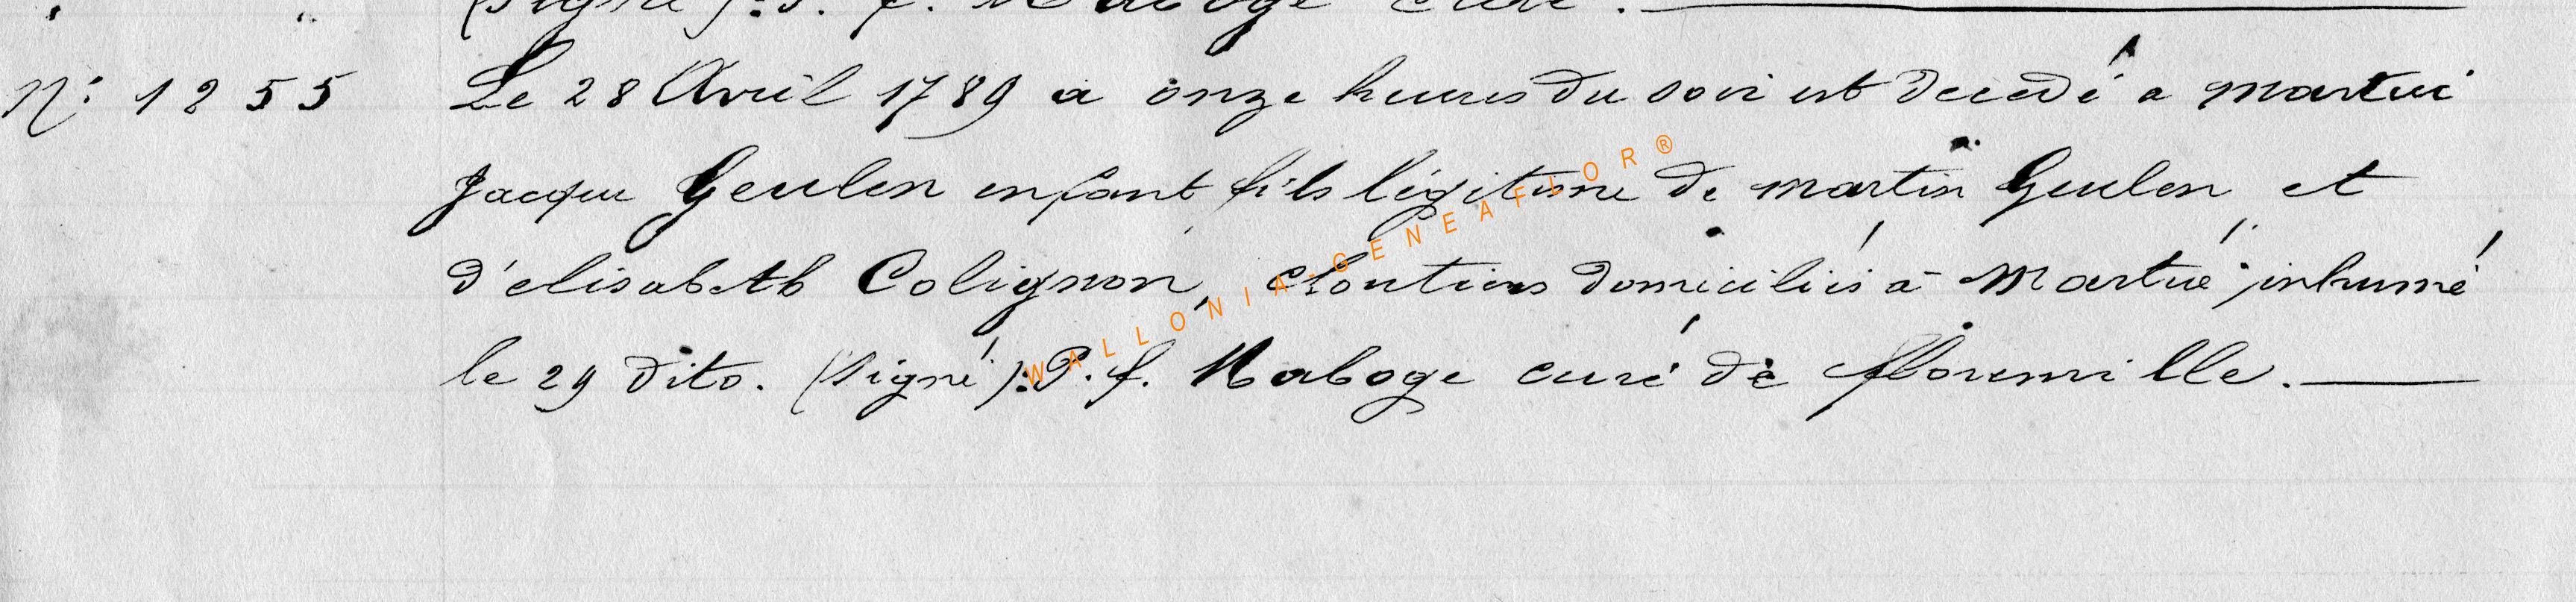 (Signé): P. f. Maboge curé.
N: 1255 Le 28 Avril 1789 a onze heures du soir est décédé a Martué
Jacque Geulen enfant fils légitime de martin Geulen et
d'elisabeth Colignon, cloutiers domiciliés à Martué, inhumé
le 29 dito. (Signé): P. f. Maboge curé de florenville.
WALLONIA-GENEAFLOR®